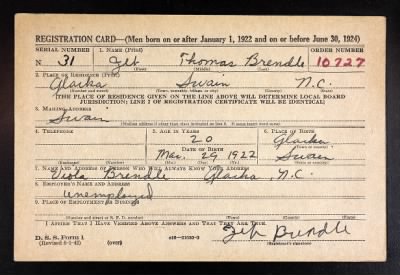 REGISTRATION CARD—(Men born on or after January 1, 1922 and on or before June 30, 1924)
SERIAL NUMBER 1. NAME (Print) ORDER NUMBER
N 31 Zeb Thomas Brendle 10727
(First) (Middle) (Last)
2. PLACE OF RESIDENCE (Print)
Swain N.C.
(Number and street) (Town, township, village, or city) (County) (State)
[THE PLACE OF RESIDENCE GIVEN ON THE LINE ABOVE WILL DETERMINE LOCAL BOARD
JURISDICTION; LINE 2 OF REGISTRATION CERTIFICATE WILL BE IDENTICAL]
3. MAILING ADDRESS
Swain
4. TELEPHONE 5. AGE IN YEARS 6. PLACE OF BIRTH
20
DATE OF BIRTH
Mar. 29 1922 Swain
(Exchange) (Number) (Mo.) (Day) (Yr.) (State or country)
7. NAME AND ADDRESS OF PERSON WHO WILL ALWAYS KNOW YOUR ADDRESS
Viola Brendle N.C.
8. EMPLOYER'S NAME AND ADDRESS
unemployed
9. PLACE OF EMPLOYMENT OR BUSINESS
(Number and street or R. F. D. number) (Town) (County) (State)
I AFFIRM THAT I HAVE VERIFIED ABOVE ANSWERS AND THAT THEY ARE TRUE.
D. S. S. Form 1
(over)
Zeb Brendle
(Registrant's signature)